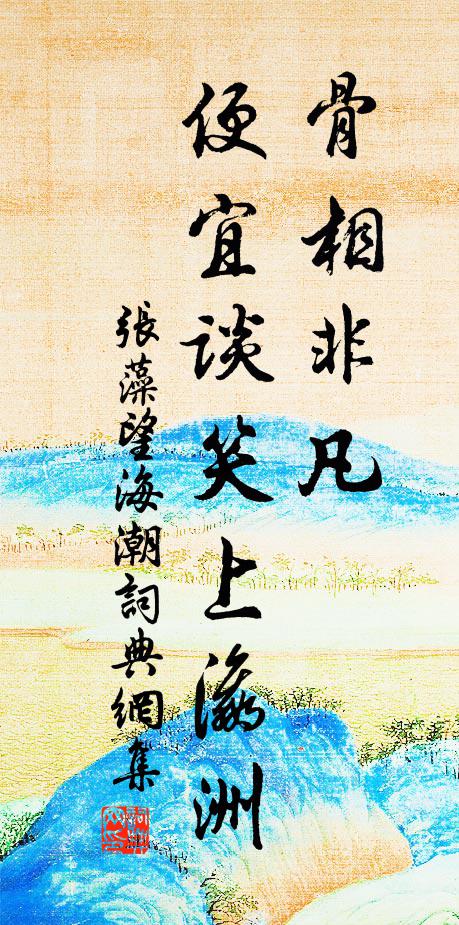 骨相非凡
便宜談笑上瀛洲
張藻望海潮詞典網集